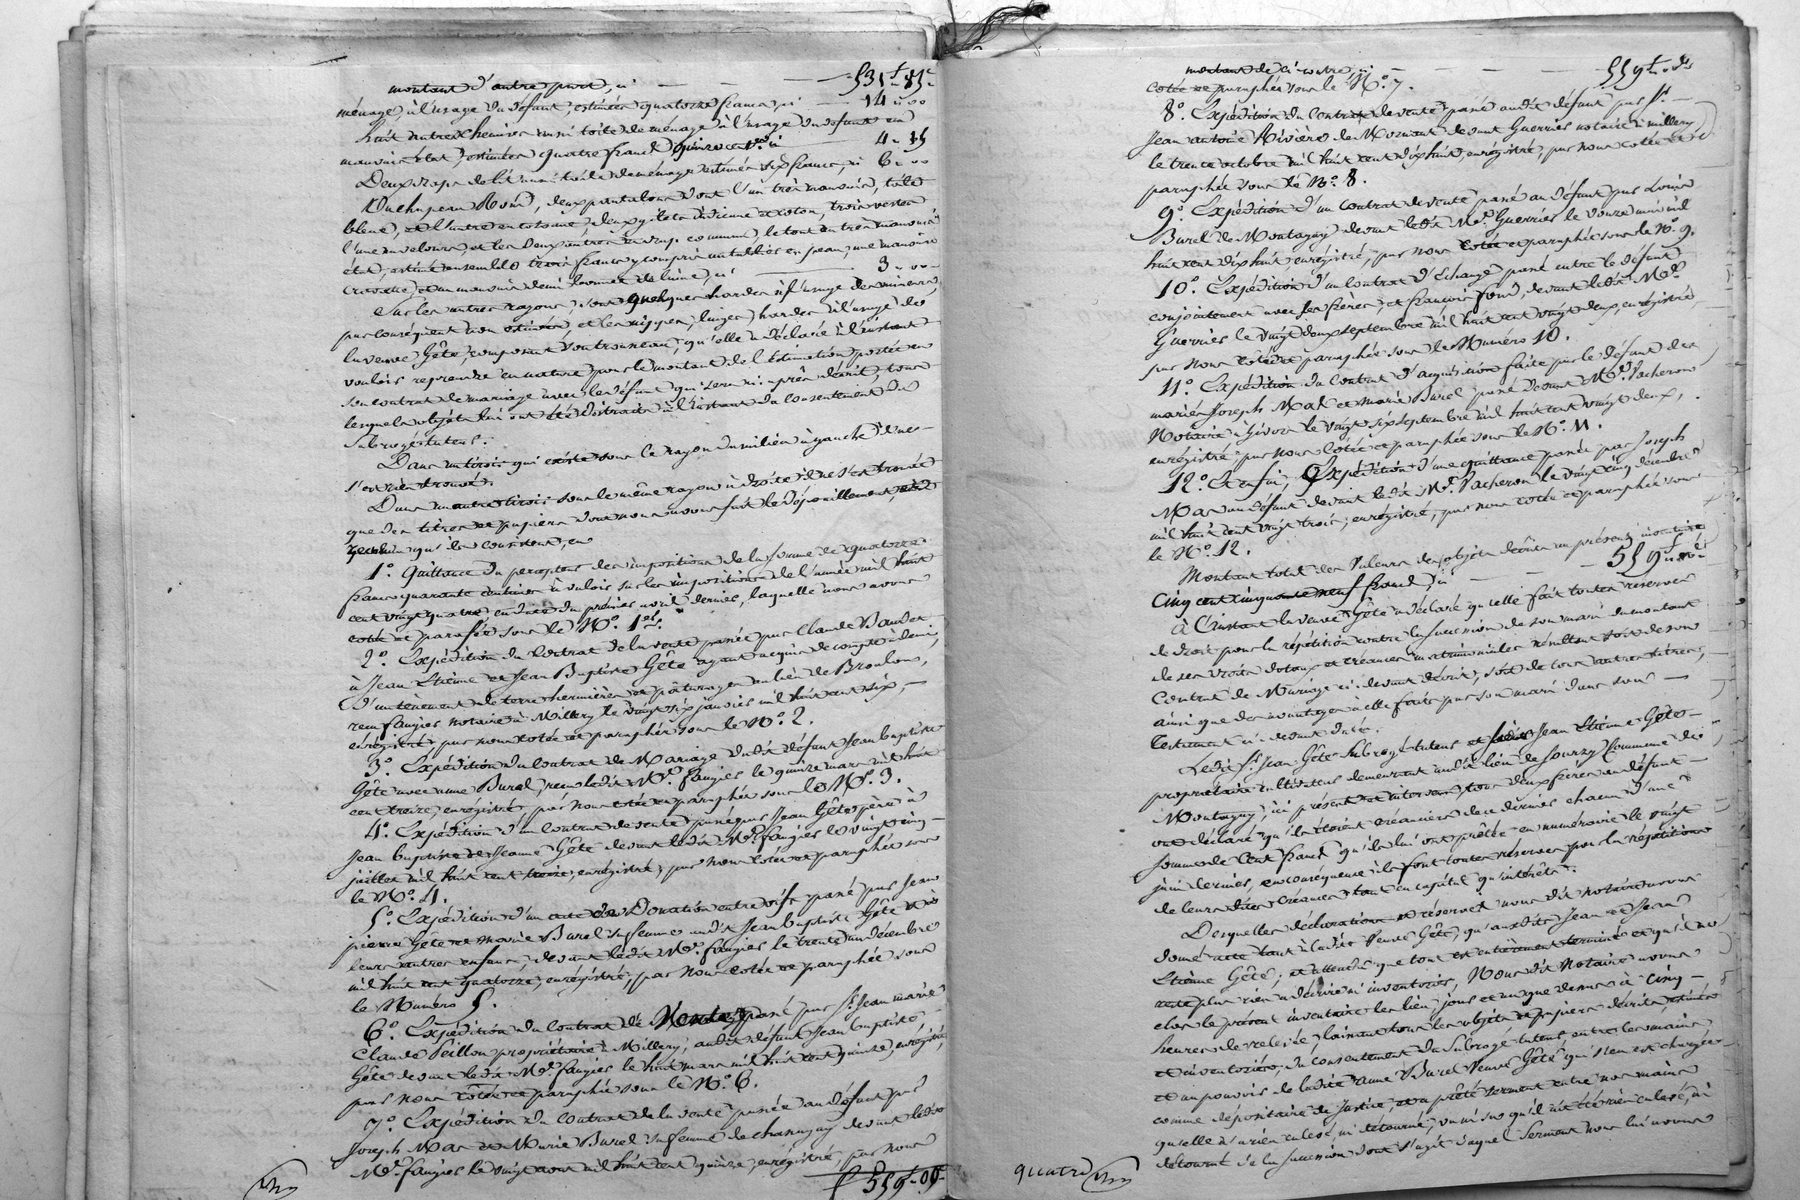 montant d'autre part, ci — 531f. 85c
ménage, à l'usage du défunt, estimées quatorze francs, ci — 14 " 00
huit autres chemises aussi toile de ménage à l'usage du défunt en
mauvais état, estimées quatre francs quinze cent. ci 4 " 15
Deux draps de lit aussi toile de ménage estimés six francs, ci 6 " 00
Un chapeau rond, deux pantalons dont l'un très mauvais, toile
bleue, et l'autre en cotonne, deux gilets indienne et coton, trois vestes
l'une en velours, et les deux autres en drap commun, le tout en très mauvais
état, estimé ensemble trois francs y compris un tablier en peau, une mauvaise
cravatte, et un mauvais demi bonnet de laine, ci 3 " 00
Sur les autres rayons, sont quelques hardes à l'usage des mineurs,
par conséquent non estimées, et les nippes, linges, hardes à l'usage de
la veuve Gête, composant son trousseau, qu'elle a déclaré à l'instant
vouloir reprendre en nature pour le montant de l'estimation portée en
son contrat de mariage avec le défunt qui sera ci-après décrit, tous
lesquels objets lui ont été distraits à l'instant du consentement du
subrogé tuteur.
Dans un tiroir qui existe sous le rayon du milieu à gauche il ne
s'est rien trouvé.
Dans un autre tiroir sous le même rayon à droite il ne s'est trouvé
que des titres et papiers dont nous avons fait le dépouillement
qui consistent, en
1o. Quittance du percepteur des impositions de la somme de quatorze
francs quarante centimes à valoir sur les impositions de l'année mil huit
cent vingt quatre en date du premier avril dernier, laquelle nous avons
cotée et parafée sous le No. 1er.
2o. Expédition du Contrat de la vente passée par Claude Baudet
à Jean Etienne et Jean Baptiste Gête ayant acquis de compte à demi,
d'un tènement de terre hermières et pâturages au lieu de Broulon,
reçu faugier notaire à Millery le vingt six janvier mil huit cent six,
enrégistré, par nous cotée et paraphée sous le No. 2.
3o. Expédition du Contrat de Mariage dudit défunt Jean baptiste
Gête avec anne Burel, reçu ledit Me. faugier le quinze mars mil huit
cent treize, enrégistré, par nous cotée et paraphée sous le No. 3.
4o. Expédition d'un Contrat de vente passé par Jean Gête père à
Jean baptiste et Jeanne Gête devant ledit Me. faugier le vingt cinq
juillet mil huit cent treize, enrégistré, par nous cotée et paraphée sous
le No. 4.
5o. Expédition d'un acte de Donation entre vifs passé par Jean
pierre Gête et Marie Burel sa femme audit Jean baptiste Gête et à
leurs autres enfans, devant ledit Me. faugier le trente un décembre
mil huit cent quatorze, enrégistré, par nous cotée et paraphée sous
le Numéro 5.
6o. Expédition du contrat de Vente passé par Sr. Jean marie
Claude Peillon propriétaire à Millery, audit défunt Jean baptiste
Gête devant ledit Me. faugier le huit mars mil huit cent quinze, enrégistré,
par nous cotée et paraphée sous le No. 6.
7o. Expédition du Contrat de la vente passée au défunt par
Joseph Mas et Marie Burel sa femme de chassagny devant ledit
Me. faugier le vingt aout mil huit cent quinze, enrégistré, par nous
559 " 00
montant de ci-contre, ci — 559f. " 00
cotée et paraphée sous le No. 7.
8o. Expédition du Contrat de vente passé audit défunt par Sr.
Jean antoine Rivière de Mornant devant Guerrier notaire à millery
le trente octobre mil huit cent dix huit, enrégistré, par nous cotée et
paraphée sous le No. 8.
9o. Expédition d'un contrat de vente passé au défunt par Louis
Burel de Montagny devant ledit Me. Guerrier le douze mai mil
huit cent dix huit, enrégistré, par nous cotée et paraphée sous le No. 9.
10o. Expédition d'un Contrat d'Echange passé entre le défunt
conjointement avec ses frères, et francois fond, devant ledit Me.
Guerrier le vingt deux septembre mil huit cent vingt deux, enrégistré,
par nous cotée et paraphée sous le Numéro 10.
11o. Expédition du Contrat d'acquisition faite par le défunt des
mariés Joseph Mas et marie Burel passé devant Me. Vacheron
Notaire à Givors le vingt six septembre mil huit cent vingt deux,
enrégistré, par nous cotée et paraphée sous le No. 11.
12o. Et enfin, Expédition d'une quittance passée par Joseph
Mas au défunt devant ledit Me. Vacheron le vingt cinq décembre
mil huit cent vingt trois, enrégistré, par nous cotée et paraphée sous
le No. 12.
Montant total des valeurs des objets décrits au présent inventaire
Cinq cent cinquante neuf francs ci — 559f. " 00
à l'instant la veuve Gête a déclaré qu'elle fait toutes réserves
de droit pour la répétition contre la succession de son mari du montant
de ses droits dotaux et créances matrimoniales résultant soit de son
Contrat de Mariage ci-devant décrit, soit de tous autres titres,
ainsi que des avantages à elle faits par son mari dans son
Testament ci-devant daté.
Ledit Sr. Jean Gête subrogé tuteur et sieur Jean Etienne Gête
propriétaire cultivateur demeurant audit lieu de Sourzy Commune de
Montagny, ici présent et intervenant tous deux frères au défunt
ont déclaré qu'ils étoient créanciers de ce dernier chacun d'une
somme de Cent francs qu'ils lui ont prêtée en numéraire le vingt
juin dernier, en conséquence ils font toutes réserves pour la répétition
de leurs dites créances tant en capital qu'intérêts.
Desquelles déclarations et réserves nous dit notaire avons
donné acte tant à ladite Veuve Gête, qu'auxdits Jean et Jean
Etienne Gête; et attendu que tout est entièrement terminé et qu'il ne
reste plus rien à décrire ni inventorier, Nous dit Notaire avons
clos le présent inventaire les lieu, jour et an que dessus à cinq
heures de relevée, laissant tous les objets et papiers décrits, estimés
et inventoriés, du consentement du Subrogé tuteur, entre les mains
et au pouvoir de ladite anne Burel Veuve Gête qui s'en est chargée
comme dépositaire de Justice, et a prêté serment entre nos mains
qu'elle n'a rien recelé, ni détourné, vu ni su qu'il ait été rien recelé, ni
détourné de la succession dont s'agit duquel Serment nous lui avons
quatre